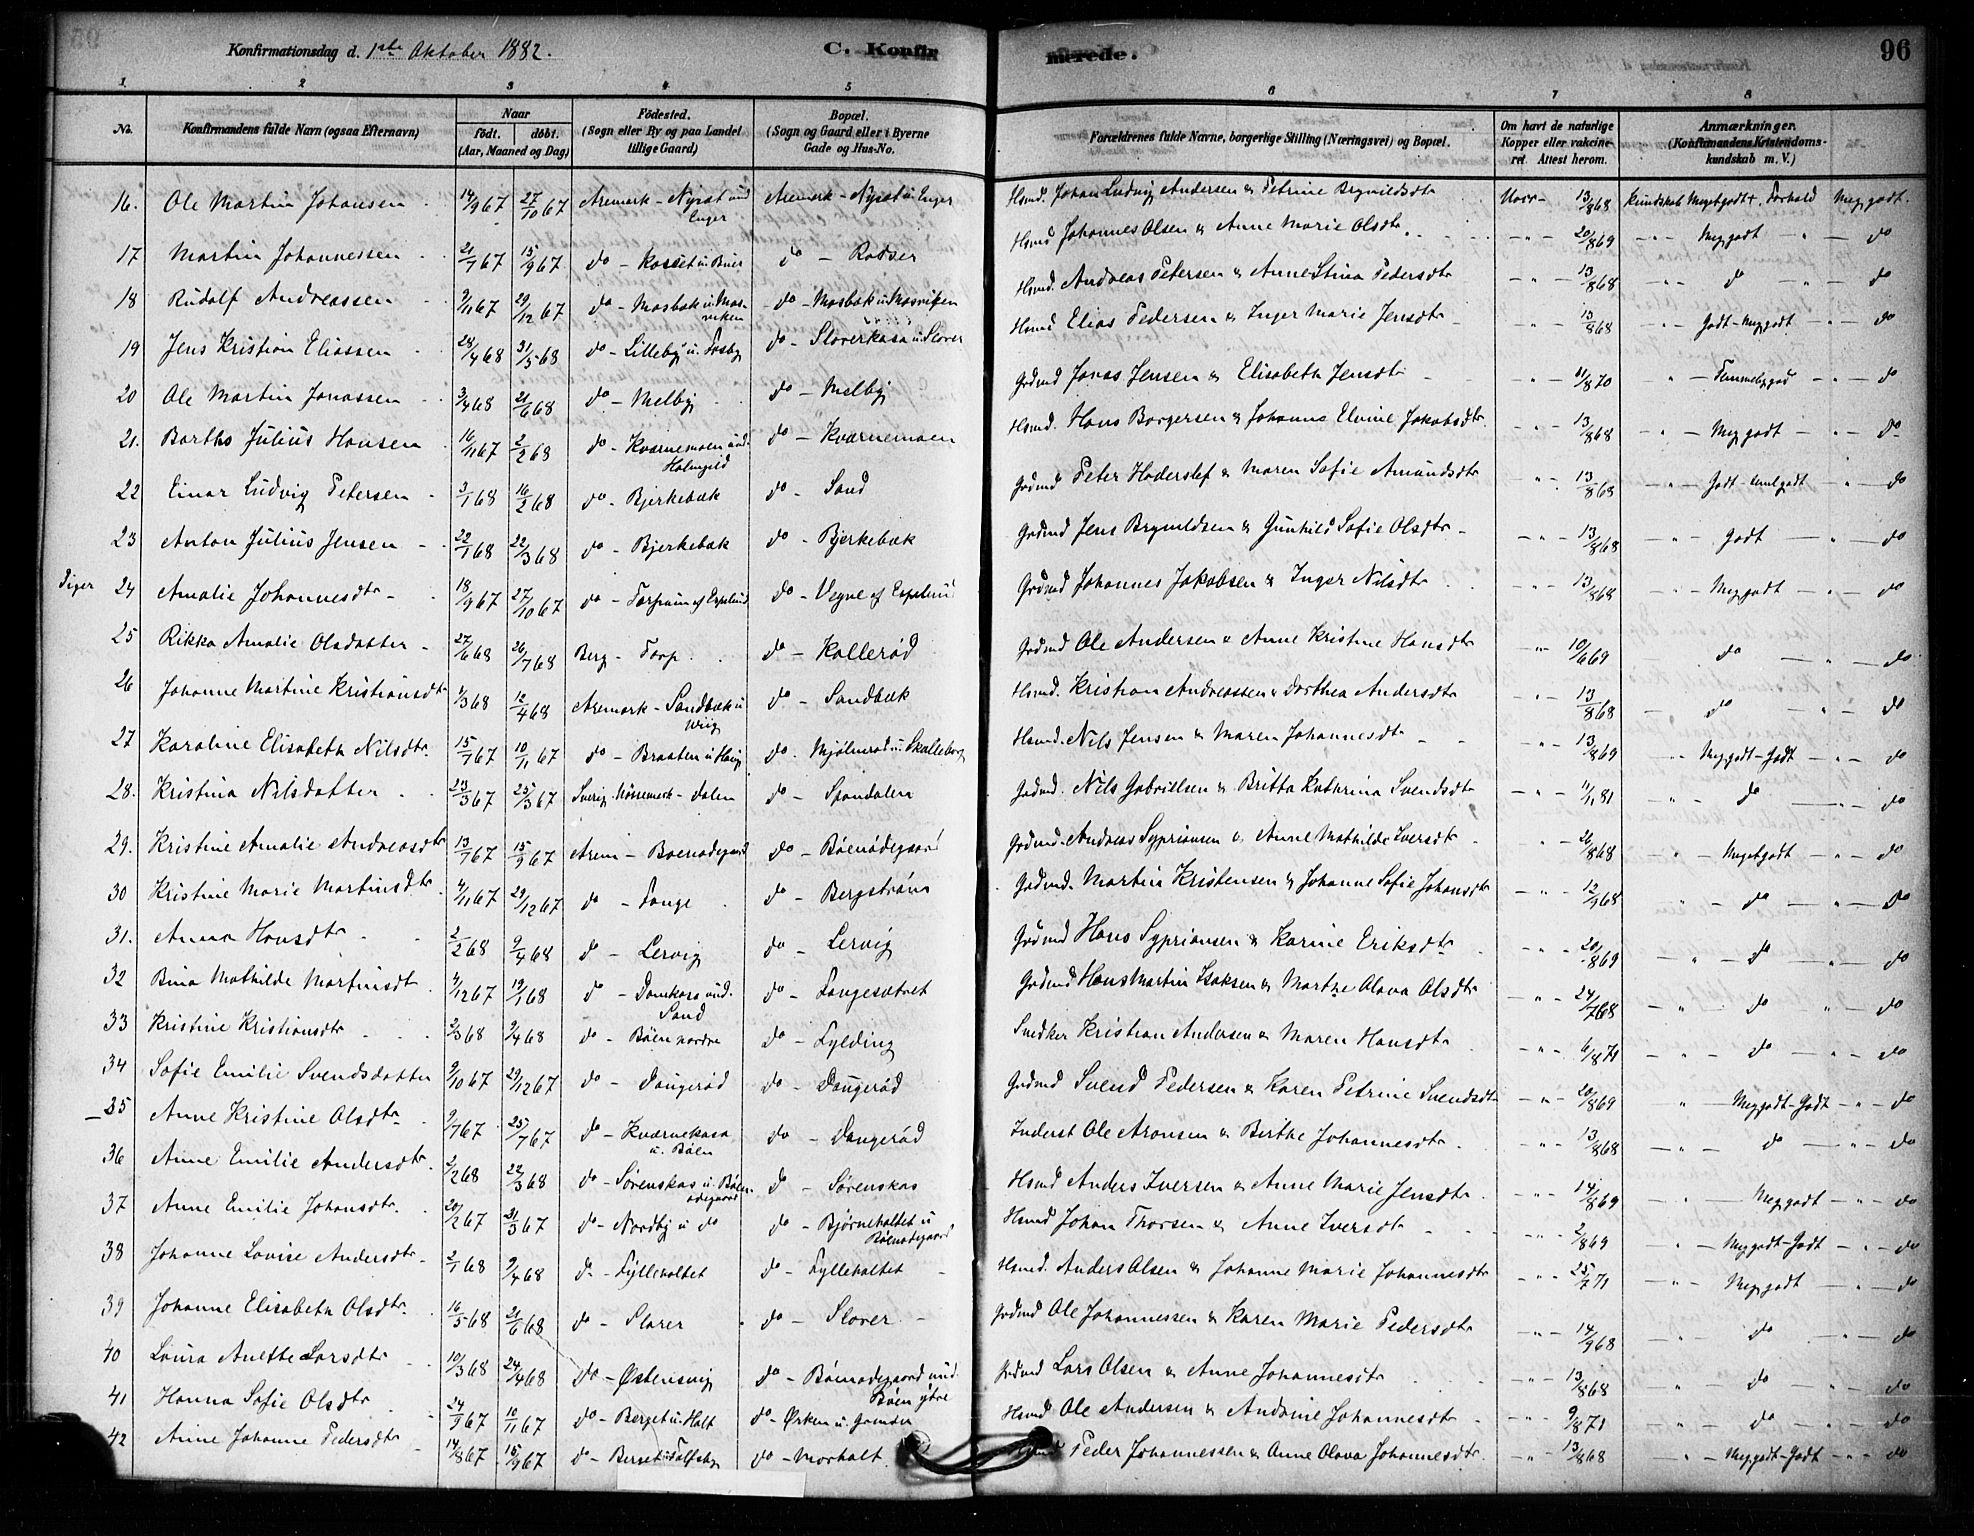 Konfirmationsdag d. 1ste Oktober 1882.
C. Konfirmerede.
96
1 2 3 4 5 6 7 8
No.
Konfirmandens fulde Navn (ogsaa Efternavn)
Naar født. døbt. (Aar, Maaned og Dag)
Fødested. (Sogn eller By og paa Landet tillige Gaard)
Bopæl. (Sogn og Gaard eller i Byerne Gade og Hus-No.
Forældrenes fulde Navne, borgerlige Stilling (Næringsvei) og Bopæl.
Om havt de naturlige Kopper eller vakcineret. Attest herom.
Anmærkninger. (Konfirmandens Kristendomskundskab m. V.)
16. Ole Martin Johansen 14/9 67 27/10 67 Aremark - Nysæt und Enger Aremark - Nysæt u. Enger Hsmd. Johan Ludvig Andersen & Petrine Brynildsdtr 13/8 68 Kundskab Megetgodt Forhold Meggodt.
17 Martin Johannessen 21/7 67 15/9 67 do - Kasset u. Buer do - Rødser Hsmd Johannes Olsen & Anne Marie Olsdtr. 20/8 69 Meggodt do
18 Rudolf Andreassen 9/11 67 29/12 67 do - Mosbæk u. Mosviken do - Mosbæk u. Mosviken Hsmd. Andreas Petersen & Anne Stina Pedersdtr 13/8 68 do do
19 Jens Kristian Eliassen 28/4 68 31/5 68 do - Lilleby u. Fosby do - Sloverkasa u. Slover Hsmd Elias Pedersen & Inger Marie Jensdtr 13/8 68 Godt-Meggodt do
20 Ole Martin Jonassen 3/4 68 21/6 68 do - Melby do - Melby Grdmd Jonas Jensen & Elisabeth Jensdtr 11/8 70 Temmeliggod do
21. Bertho Julius Hansen 16/11 67 2/2 68 do - Kvarnemoen und. Holmgild do - Kvarnemoen Hsmd. Hans Borgersen & Johanne Elvine Jakobsdtr. 13/8 68 Meggodt do
22 Einar Ludvig Petersen 3/1 68 16/2 68 do - Bjerkebæk do - Sand Grdmd Peter Haderslef & Maren Sofie Amundsdtr 13/8 68 Godt - temlgodt do
23 Anton Julius Jensen 22/1 68 22/3 68 do - Bjerkebæk do - Bjerkebæk Grdmd Jens Brynildsen & Gunhild Sofie Olsdtr 13/8 68 Godt do
Piger 24 Amalie Johannesdtr 18/9 67 27/10 67 do - Torpum af Espelund do - Vegne af Espelund Grdmd Johannes Jakobsen & Inger Nilsdtr 13/8 68 Meggodt do
25 Rikka Amalie Olsdatter 27/6 68 26/7 68 Berg - Torp do - Kollerød Grdmd Ole Andersen & Anne Kristine Hansdtr 10/6 69 do do
26 Johanne Martine Kristiansdtr 1/3 68 12/4 68 Aremark - Sandbæk u. Wiig do - Sandbæk Hsmd. Kristian Andreassen & Dorthea Andersdtr 13/8 68 do do
27 Karoline Elisabeth Nilsdtr. 15/7 67 10/11 67 do - Braaten u. do. Mjølnerød u. Skolleborg Hsmd. Nils Jensen & Maren Johannesdtr 13/8 69 Meggodt-Godt do
28. Kristina Nilsdatter 23/3 67 25/3 67 Sverig Nössemark - Dalen do - Spondalen Grdmd. Nils Gabrielsen & Britta Kathrina Svendsdtr 11/1 81 do do
29. Kristine Amalie Andreasdtr 13/7 67 15/9 67 Arem - Bøenødegaard do - Bøenødegaard Grdmd. Andreas Syprionsen & Anne Mathilde Iversdtr 26/8 68 Megetgodt do
30 Kristine Marie Martinsdtr 4/11 67 29/12 67 do - Tange do - Bergstrøm Grdmd. Martin Kristensen & Johanne Sofie Johansdtr 12/9 68 do do
31. Anna Hansdtr 2/2 68 9/4 68 do - Lervig do - Lervig Grdmd Hans Syprionsen & Karine Eriksdtr 20/8 69 do do
32 Bina Mathilde Martinsdtr 4/12 67 19/1 68 do - Domkasa und. Sand do - Tangesætret Grdmd Hans Martin Isaksen & Marthe Olava Olsdtr 24/7 68 do do
33 Kristine Kristiansdtr 2/3 68 9/4 68 do - Bøen nordre do - Fylding Snedker Kristian Andersen & Maren Hansdtr 6/8 71 do do
34 Sofie Emilie Svendsdatter 9/10 67 29/12 67 do - Daugerød do - Daugerød Grdmd Svend Pedersen & Karen Petrine Svendsdtr 20/8 69 Meggodt-Godt do
35 Anne Kristine Olsdtr 9/7 67 25/7 67 do - Kvarnekasa u. Bøen do - Daugerød Inderst Ole Aronsen & Birthe Johannesdtr 13/8 68 do do
36 Anne Emilie Andersdtr. 2/2 68 22/3 68 do - Sørenskas u. Bøenødegaard do - Sørenskas Hsmd Anders Iversen & Anne Marie Jensdtr 14/8 69 Meggodt do
37 Anne Emilie Johansdtr. 20/2 67 31/3 67 do - Nordby u. do do - Bjørneholtet u. Bøenødegaard Hsmd Johan Thorsen & Anne Iversdtr 2/8 69 Meggodt-Godt do
38 Johanne Lovise Andersdtr 2/1 68 9/4 68 do - Fylleholtet do - Fylleholtet Hsmd. Anders Olsen & Johanne Marie Johannesdtr 25/7 71 Meggodt do
39 Johanne Elisabeth Olsdtr. 16/5 68 21/6 68 do - Slorer do - Slover Grdmd Ole Johannessen & Karen Marie Pedersdtr 14/9 68 do do
40 Laura Anette Larsdtr 10/3 68 24/4 68 do - Østensvig do - Bøenødegaard und. Bøen ytre Grdmd Lars Olsen & Anne Johannesdtr 13/8 68 do do
41 Hanna Sofie Olsdtr 24/9 67 10/11 67 do - Berget u. Holt do - Ørken u. Hsmd. Ole Andersen & Andrine Johannesdtr 9/8 71 do do
42 Anne Johanne Pedersdtr 14/8 67 15/9 67 do - Berset u. do - Morholt Hsmd Peder Johannessen & Anne Olava Johannesdtr. 13/8 68 Meggodt-Godt do